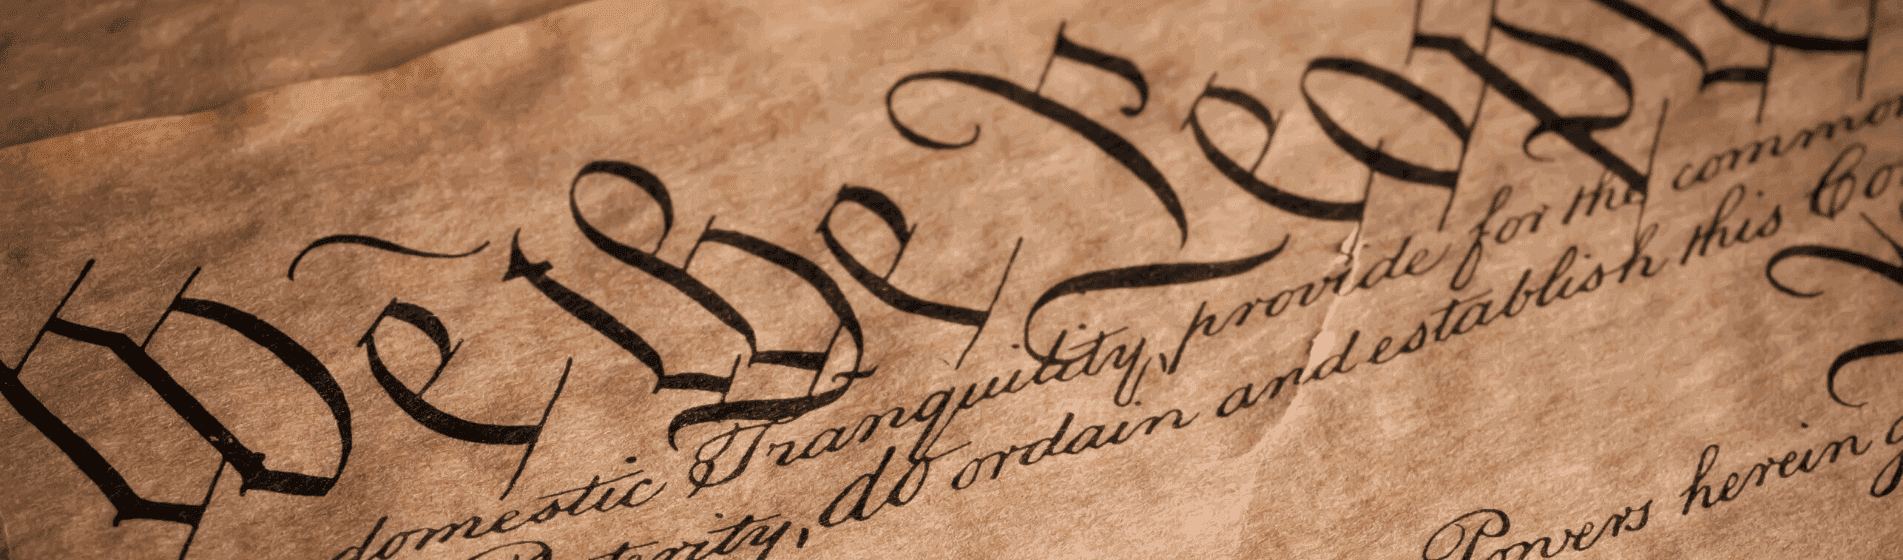 We the People
domestic Tranquility, provide for the common
Posterity, do ordain and establish this Con
Powers herein g